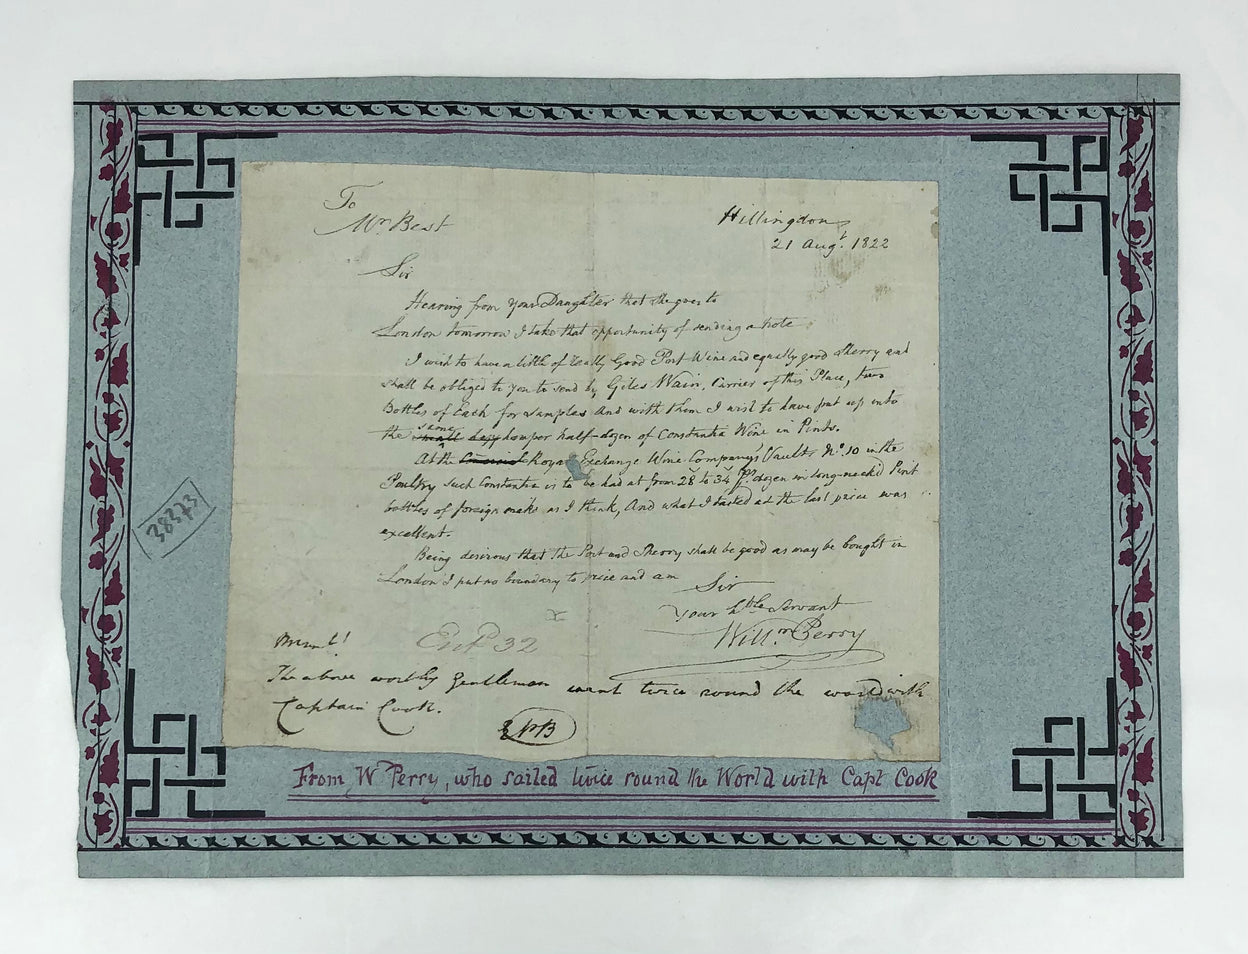 To
Mr. Best
Hillingdon
21 Augt. 1822
Sir
Hearing from your Daughter that she goes to
London tomorrow I take that opportunity of sending a note
I wish to have a little of really Good Port Wine and equally good Sherry and
shall be obliged to you to send by Giles Wain, Carrier of this Place, two
Bottles of Each for samples and with them I wish to have put up into
same
the small hamper half-dozen of Constantia Wine in Pints.
At the Royal Exchange Wine Company's Vaults, No. 10 in the
Poultry such Constantia is to be had at from 28 to 34 pr. dozen in long-neck'd Pint
bottles of foreign make as I think, And what I tasted at the last price was
excellent.
Being desirous that the Port and Sherry shall be good as may be bought in
London I put no boundary to price and am
Sir
Your hble Servant
Willm Perry
x
Ent 32
The above worthy Gentleman went twice round the world with
Captain Cook.
38373
From W Perry, who sailed twice round the World with Capt Cook